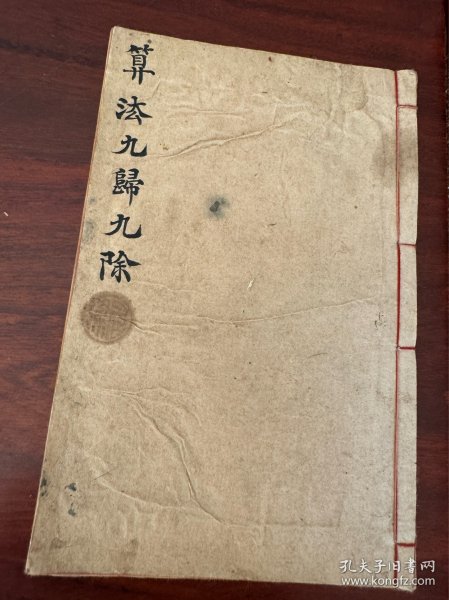 算法九歸九除
孔夫子旧书网
www.kongfz.com